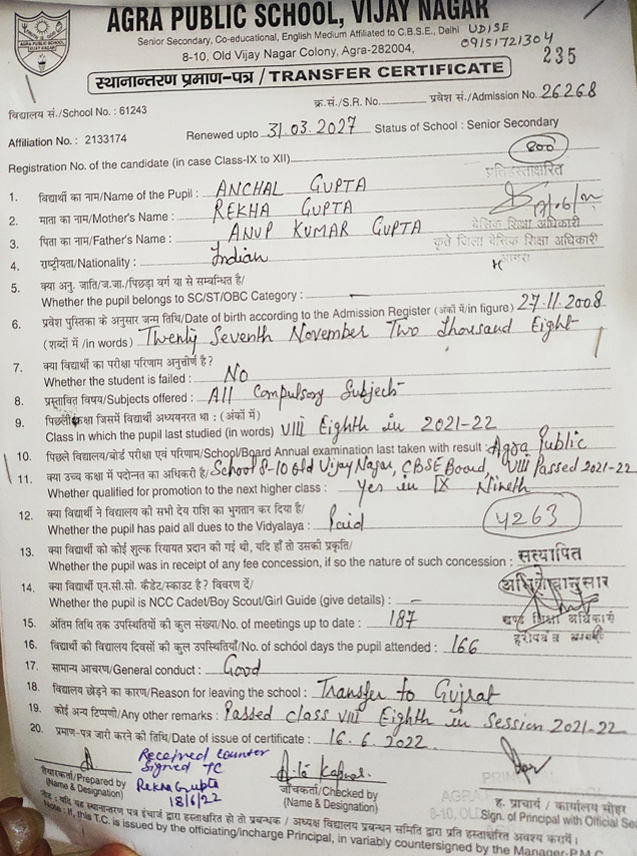 AGRA PUBLIC SCHOOL
VIJAY NAGAR
AGRA PUBLIC SCHOOL, VIJAY NAGAR
Senior Secondary, Co-educational, English Medium Affiliated to C.B.S.E., Delhi UDISE
8-10, Old Vijay Nagar Colony, Agra-282004, 09151721304
235
स्थानान्तरण प्रमाण-पत्र / TRANSFER CERTIFICATE
विद्यालय सं./School No. : 61243 क्र.सं./S.R. No. प्रवेश सं./Admission No. 26268
Affiliation No. : 2133174 Renewed upto 31.03.2027 Status of School : Senior Secondary
Registration No. of the candidate (in case Class-IX to XII) 800
प्रतिहस्ताक्षरित
1. विद्यार्थी का नाम/Name of the Pupil : ANCHAL GUPTA
2. माता का नाम/Mother's Name : REKHA GUPTA
3. पिता का नाम/Father's Name : ANUP KUMAR GUPTA
बेसिक शिक्षा अधिकारी
कृते जिला बेसिक शिक्षा अधिकारी
आगरा
4. राष्ट्रीयता/Nationality : Indian
5. क्या अनु. जाति/ज.जा./पिछड़ा वर्ग या से सम्बन्धित है/
Whether the pupil belongs to SC/ST/OBC Category : —
6. प्रवेश पुस्तिका के अनुसार जन्म तिथि/Date of birth according to the Admission Register (अंकों में/in figure) 27.11.2008
(शब्दों में /in words) Twenty Seventh November Two Thousand Eight
7. क्या विद्यार्थी का परीक्षा परिणाम अनुत्तीर्ण है?
Whether the student is failed : No
8. प्रस्तावित विषय/Subjects offered : All Compulsory Subjects
9. पिछली कक्षा जिसमें विद्यार्थी अध्ययनरत था : (अंकों में)
Class in which the pupil last studied (in words) VIII Eighth in 2021-22
10. पिछले विद्यालय/बोर्ड परीक्षा एवं परिणाम/School/Board Annual examination last taken with result : Agra Public
School 8-10 old Vijay Nagar, CBSE Board, VIII Passed 2021-22
11. क्या उच्च कक्षा में पदोन्नत का अधिकरी है/
Whether qualified for promotion to the next higher class : Yes in IX Nineth
12. क्या विद्यार्थी ने विद्यालय की सभी देय राशि का भुगतान कर दिया है/
Whether the pupil has paid all dues to the Vidyalaya : Paid
4263
13. क्या विद्यार्थी को कोई शुल्क रियायत प्रदान की गई थी, यदि हाँ तो उसकी प्रकृति/
Whether the pupil was in receipt of any fee concession, if so the nature of such concession :
सत्यापित
14. क्या विद्यार्थी एन.सी.सी. कैडेट/स्काउट है? विवरण दें/
Whether the pupil is NCC Cadet/Boy Scout/Girl Guide (give details) : —
खण्ड शिक्षा अधिकारी
15. अंतिम तिथि तक उपस्थितियों की कुल संख्या/No. of meetings up to date : 187
16. विद्यार्थी की विद्यालय दिवसों की कुल उपस्थितियाँ/No. of school days the pupil attended : 166
17. सामान्य आचरण/General conduct : Good
18. विद्यालय छोड़ने का कारण/Reason for leaving the school : Transfer to Gujrat
19. कोई अन्य टिप्पणी/Any other remarks : Passed class VIII Eighth in Session 2021-22
20. प्रमाण-पत्र जारी करने की तिथि/Date of issue of certificate : 16.6.2022
Received counter
Signed TC
Rekha Gupta
18/6/22
तैयारकर्ता/Prepared by
(Name & Designation)
जाँचकर्ता/Checked by
(Name & Designation)
ह. प्राचार्य / कार्यालय मोहर
Sign. of Principal with Official Se
नोट : यदि यह स्थानान्तरण पत्र इंचार्ज द्वारा हस्ताक्षरित हो तो प्रबन्धक / अध्यक्ष विद्यालय प्रबन्धन समिति द्वारा प्रति हस्ताक्षरित अवश्य करायें।
Note : If, this T.C. is issued by the officiating/incharge Principal, in variably countersigned by the Manager-P.M.C.